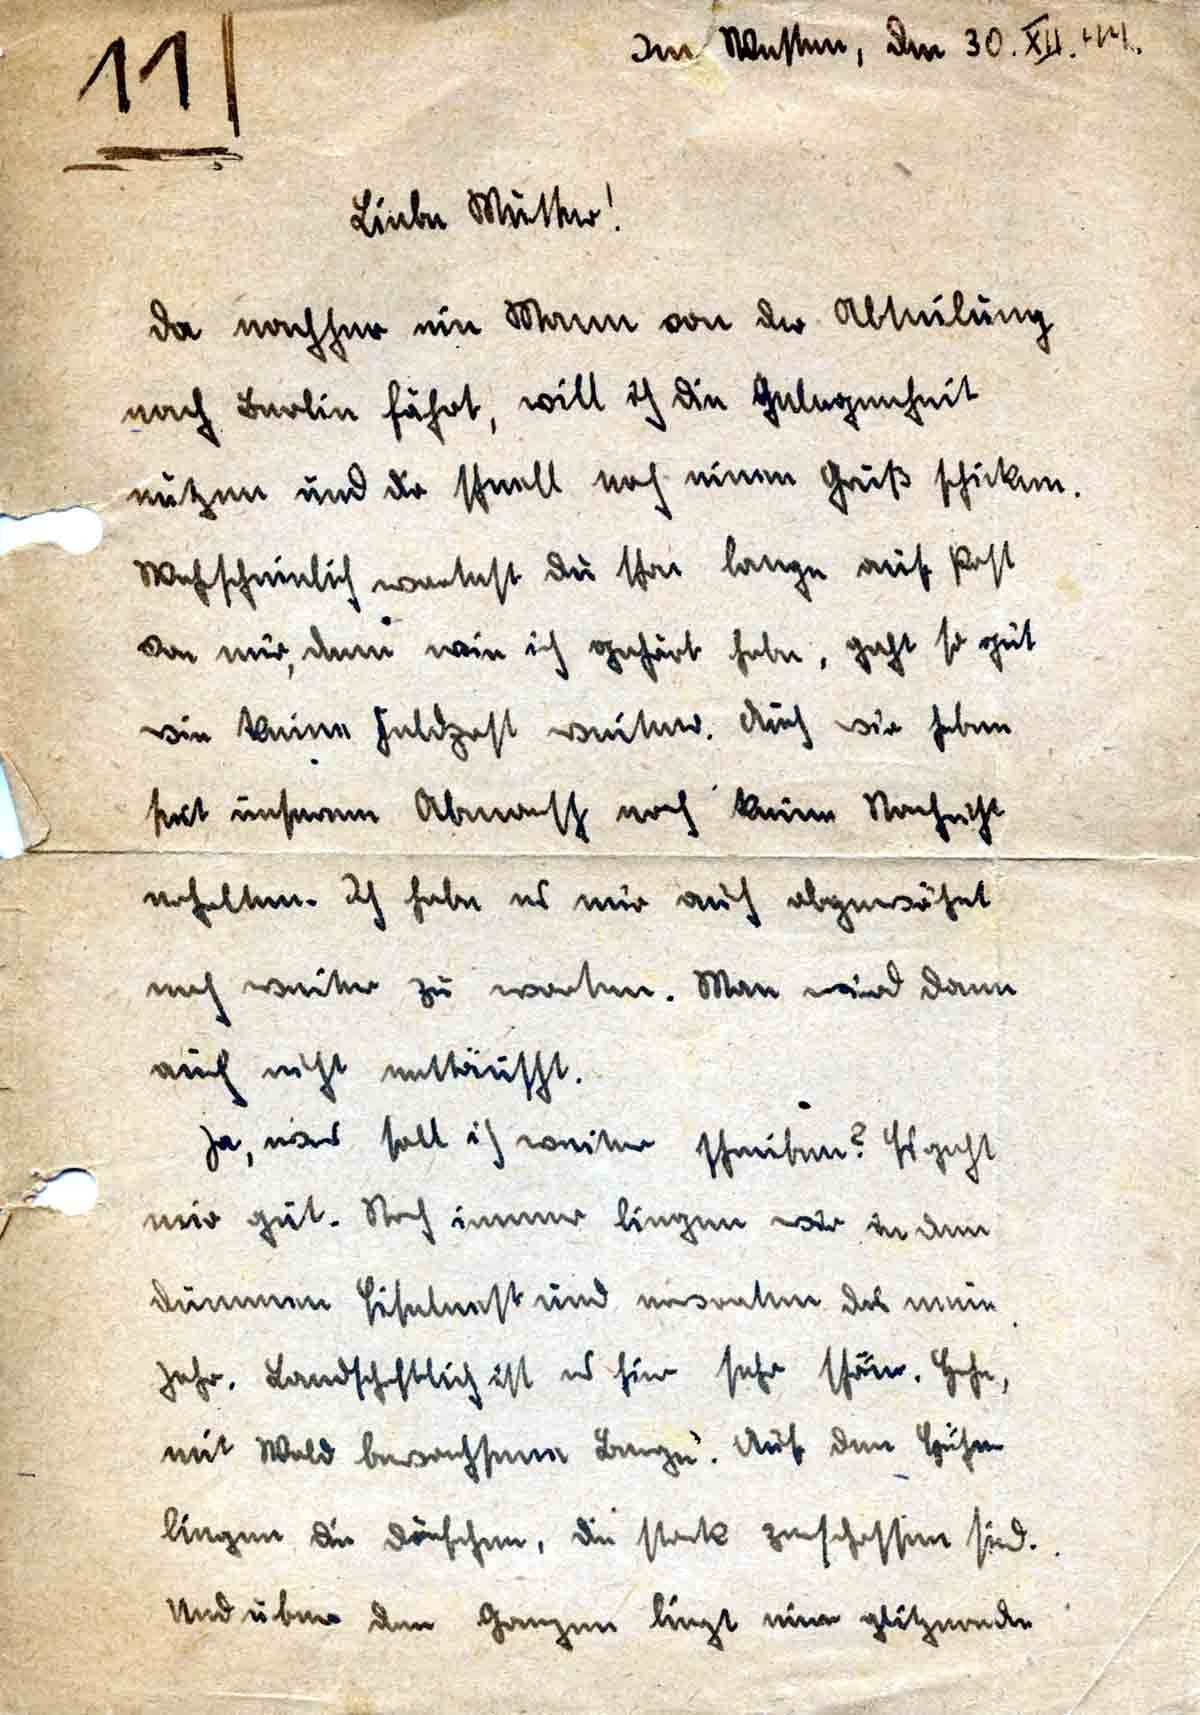 11
Im Westen, den 30. XII. 44.
Liebe Mutter!
Da nachher ein Mann von der Abteilung
nach Berlin fährt, will ich die Gelegenheit
nutzen und dir schnell noch einen Gruß schicken.
Wahrscheinlich wartest du schon lange auf Post
von mir, denn wie ich gehört habe, geht so gut
wie keine Feldpost weiter. Auch wir haben
seit unserem Abmarsch noch keine Nachricht
erhalten. Ich habe es mir auch abgewöhnt
noch weiter zu warten. Man wird dann
auch nicht enttäuscht.
Ja, was soll ich weiter schreiben? Es geht
mir gut. Noch immer liegen wir in dem
dummen Eifelnest und erwarten das neue
Jahr. Landschaftlich ist es hier sehr schön. Hohe,
mit Wald bewachsene Berge. Auf den Höhen
liegen die Dörfchen, die stark zerschossen sind.
Und über dem Ganzen liegt eine glitzernde